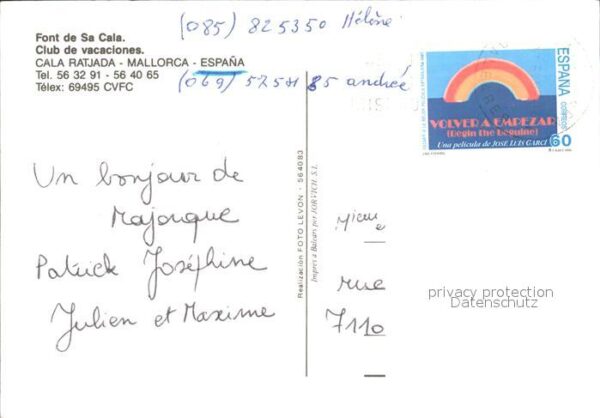 (085) 825350 Hélène
Font de Sa Cala.
Club de vacaciones.
CALA RATJADA - MALLORCA - ESPAÑA
Tel. 56 32 91 - 56 40 65
Télex: 69495 CVFC
85 andrée
ESPAÑA
CORREOS
VOLVER A EMPEZAR
(Begin the beguine)
Una película de JOSE LUIS GARCI
60
Un bonjour de
Majorque
Patrick Joséphine
Julien et Maxime
Realización FOTO LEVON - 564083
Impres a Balears per JORVICH, S.I.
rue
7110
privacy protection
Datenschutz